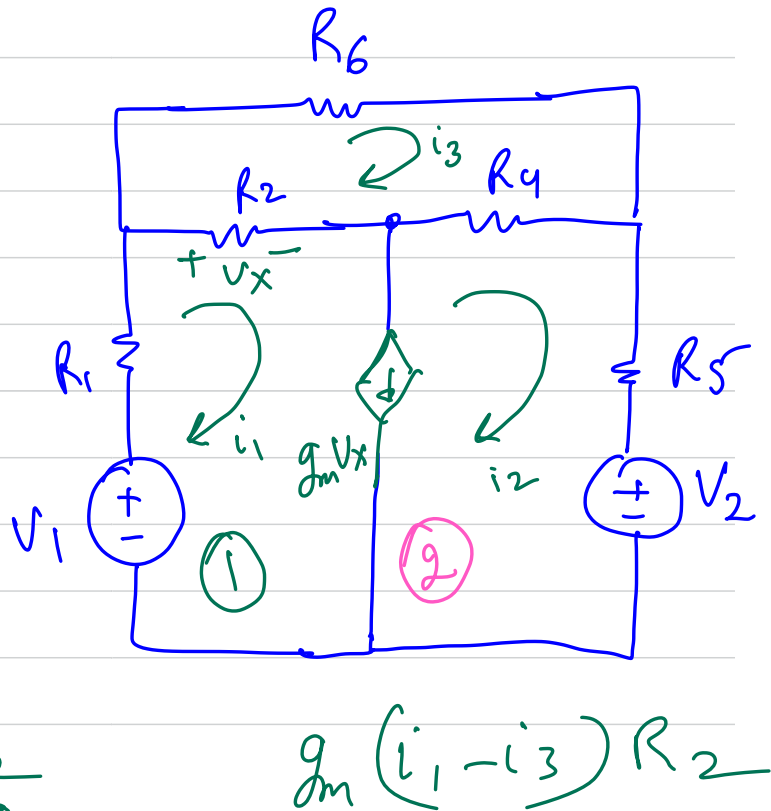 R6
i3
R2
R4
+ Vx −
R1
i1
gmVx
i2
R5
V1
+
−
1
2
+
−
V2
gm(i1 − i3)R2